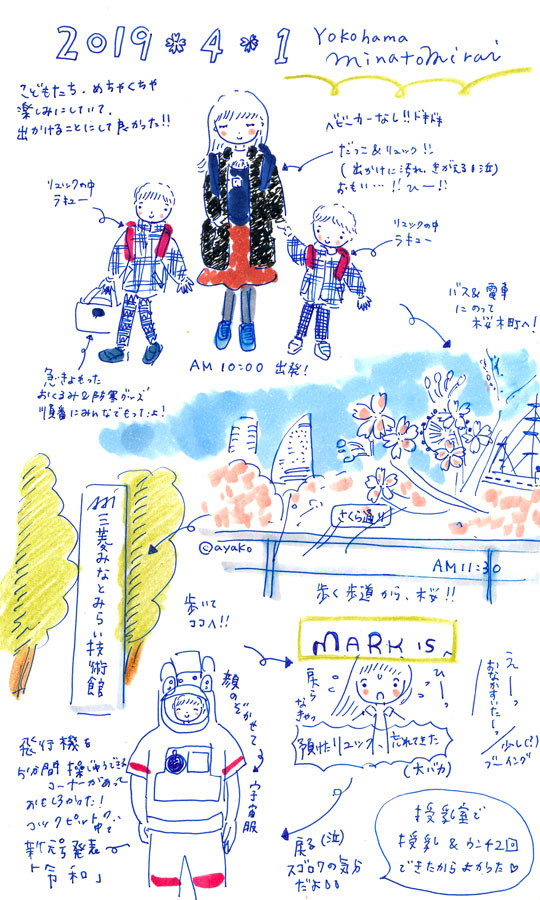 2019*4*1
Yokohama
minatoMirai
こどもたち、めちゃくちゃ
楽しみにしていて、
出かけることにして良かった!!
ベビーカーなし!!ドキドキ
だっこ&リュック!!
(出かけに汚れ、きがえる(泣)
おもい…!!ひー!!
リュックの中
ラキュー
リュックの中
ラキュー
バス&電車
にのって
桜木町へ!
AM 10:00 出発!
急きょもった
おくるみ&防寒グッズ
順番にみんなでもったよ!
さくら通り
©ayako
AM11:30
歩く歩道から、桜!!
三菱みなとみらい技術館
歩いて
ココへ!!
MARK IS
えーっ
おなかすいたーっ
少し(?)
ブーイング
ひーっ
戻ら
なきゃっ
預けたリュック、忘れてきた
(大バカ)
顔のぞかせて
宇宙服
飛行機を
5分間操じゅうできる
コーナーがあって
おもしろかった!
コックピットの
中で
新元号発表
「令和」
戻る(泣)
スゴロクの気分
だよ
授乳室で
授乳&ウンチ2回
できたからよかった♡